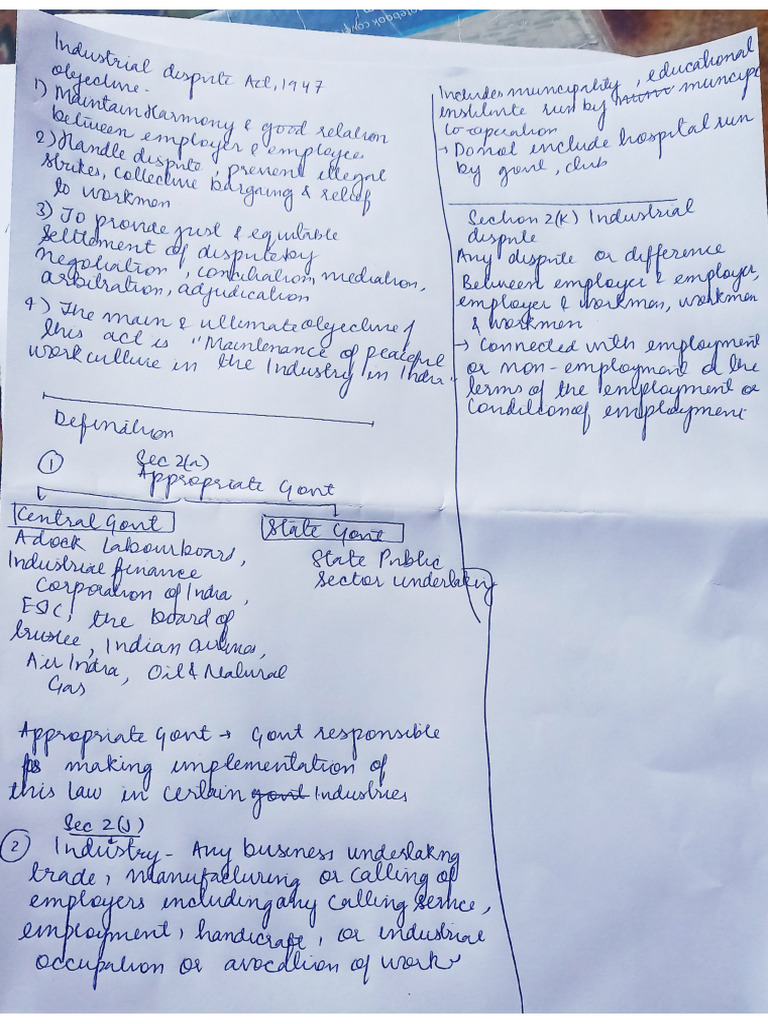 Industrial dispute Act, 1947
objective-
1) Maintain Harmony & good relation
between employer & employee
2) Handle dispute, prevent illegal
strikes, collective bargaing & relief
to workmen
3) To provide just & equitable
settlement of dispute by
negotiation, conciliation, mediation,
arbitration, adjudication
4) The main & ultimate objective of
this act is "Maintenance of peaceful
work culture in the Industry in India"
Definition
① Sec 2(a)
Appropriate Govt
Central Govt
Adock Labourboard,
Industrial finance
Corporation of India,
ESIC, the board of
trustee, Indian airlines,
Air India, Oil & Natural
Gas
State Govt
State Public
sector undertaking
Appropriate Govt → Govt responsible
for making implementation of
this law in certain govt Industries
Sec 2(J)
② Industry- Any business undertakng
trade, manufacturing or calling of
employers including any calling service,
employment, handicraft, or industrial
occupation or avocation of work
Includes muncipality, educational
institute run by muncipal
cooperation
→ Donot include hospital run
by govt, club
Section 2(K) Industrial
dispute
Any dispute or difference
Between employer & employer,
employer & workmen, workmen
& workmen
→ Connected with employment
or non-employment or the
terms of the employment or
condition of employment